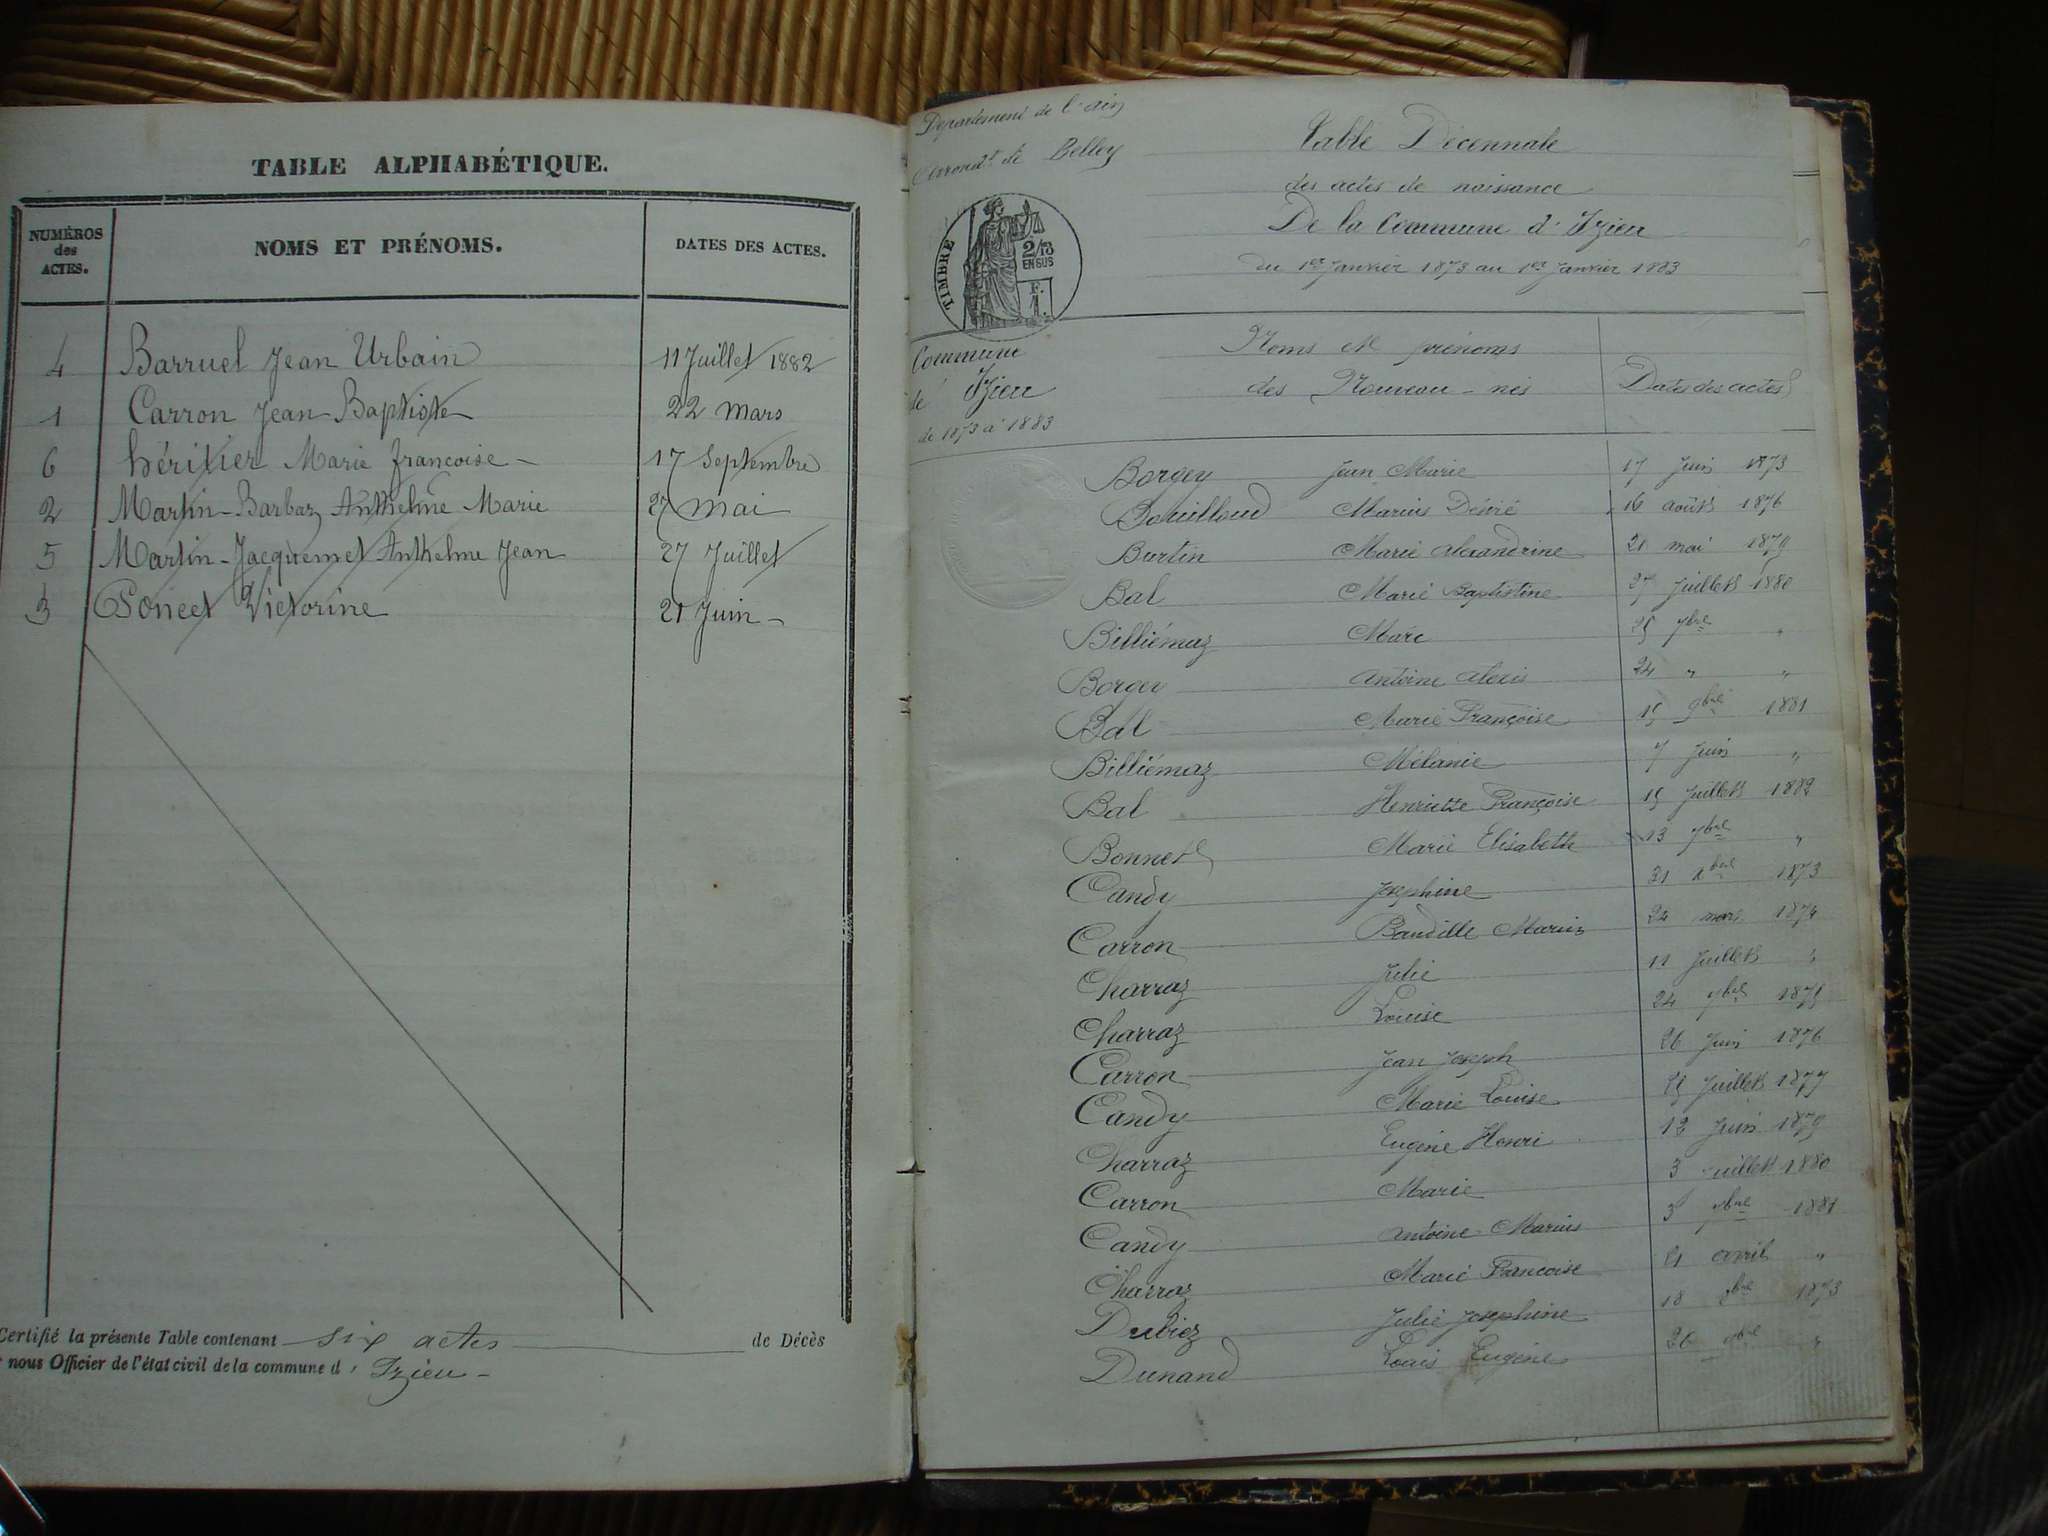 TABLE ALPHABÉTIQUE.
NUMÉROS des ACTES.
NOMS ET PRÉNOMS.
DATES DES ACTES.
4 Barruel Jean Urbain 11 Juillet 1882
1 Carron Jean Baptiste 22 mars
6 héritier Marie francoise 17 Septembre
2 Martin-Barbaz Anthelme Marie 27 mai
5 Martin-Jacquemet Anthelme Jean 27 Juillet
3 Poncet Victorine 21 Juin
Certifié la présente Table contenant six actes de Décès
nous Officier de l'état civil de la commune d'Izieu
Département de l'ain
Arrondt de Belley
TIMBRE
2/10 EN SUS
F.
1.
Commune
de Izieu
de 1873 à 1883
Table Décennale
des actes de naissance
De la Commune d'Izieu
du 1er Janvier 1873 au 1er Janvier 1883
Noms et prénoms
des Nouveau-nés
Dates des actes
Borgey Jean Marie 17 Juin 1873
Bouilloud Marius Désiré 16 août 1876
Burtin Marie alexandrine 21 mai 1879
Bal Marie Baptistine 27 Juillet 1880
Billiémaz Marc 25 7bre "
Borgey antoine alexis 24 " "
Bal Marie Françoise 15 9bre 1881
Billiémaz Mélanie 7 Juin "
Bal Henriette Françoise 15 Juillet 1882
Bonnet Marie Elisabeth 13 7bre "
Candy Josephine 31 xbre 1873
Carron Baudille Marius 24 mars 1874
Charraz Julie 11 Juillet "
Charraz Louise 24 7bre 1875
Carron Jean Joseph 26 Juin 1876
Candy Marie Louise 25 Juillet 1877
Charraz Eugène Henri 12 Juin 1879
Carron Marie 3 Juillet 1880
Candy antoine Marius 3 7bre 1881
Charraz Marie Francoise 21 avril "
Dubiez Julie Josephine 18 8bre 1873
Dunand Louis Eugène 26 "